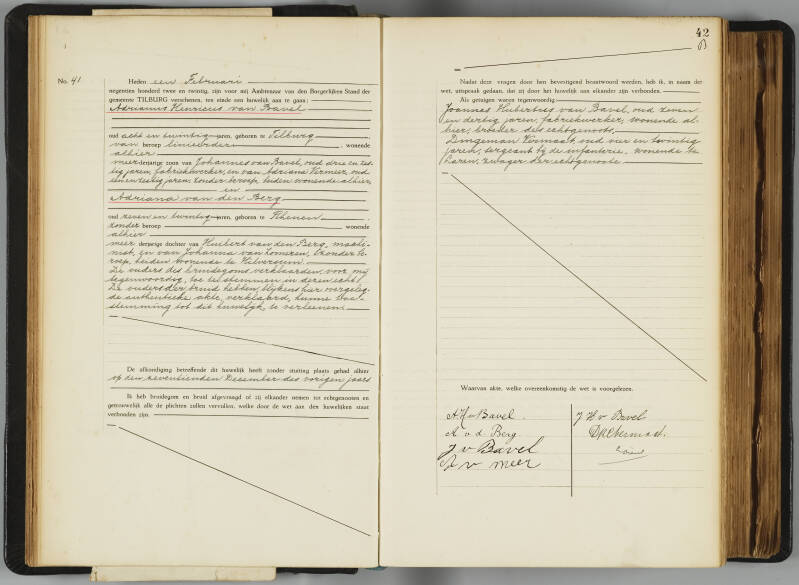 No. 41
Heden een Februari
negentien honderd twee en twintig, zijn voor mij Ambtenaar van den Burgerlijken Stand der
gemeente TILBURG verschenen, ten einde een huwelijk aan te gaan:
Adrianus Henricus van Bavel
oud acht en twintig jaren, geboren te Tilburg
van beroep wonende
alhier
meerderjarige zoon van Johannes van Bavel, oud drie en zes-
tig jaren, fabriekwerker, en van Adriana Vermeer, oud
zestig jaren, zonder beroep, beiden wonende alhier,
en
Adriana van den Berg
oud zeven en twintig jaren, geboren te Rhenen
zonder beroep wonende
alhier
meerderjarige dochter van Huibert van den Berg, machi-
nist, en van Johanna van Lomeren, zonder be-
roep, beiden wonende te Hilversum.
De ouders des bruidegoms verklaarden voor mij
tegenwoordig, toe te stemmen in deren echt.
De ouders der bruid hebben, blijkens hier overgeleg-
de authentieke akte, verklaard, hunne toe-
stemming tot dit huwelijk te verleenen.
De afkondiging betreffende dit huwelijk heeft zonder stuiting plaats gehad alhier
op den zeventienden December des vorigen jaars
Ik heb bruidegom en bruid afgevraagd of zij elkander nemen tot echtgenooten en
getrouwelijk alle de plichten zullen vervullen, welke door de wet aan den huwelijken staat
verbonden zijn.
42
Nadat deze vragen door hen bevestigend beantwoord werden, heb ik, in naam der
wet, uitspraak gedaan, dat zij door het huwelijk aan elkander zijn verbonden.
Als getuigen waren tegenwoordig
Joannes Hubertus van Bavel, oud zeven
en dertig jaren, fabriekwerker, wonende al-
hier, broeder des echtgenoots,
Dingeman Vermaat, oud vier en twintig
jaren, sergeant bij de infanterie, wonende te
Laren, zwager der echtgenoote
Waarvan akte, welke overeenkomstig de wet is voorgelezen.
A H v Bavel
J H v Bavel
A v. d. Berg
J v Bavel
A v meer